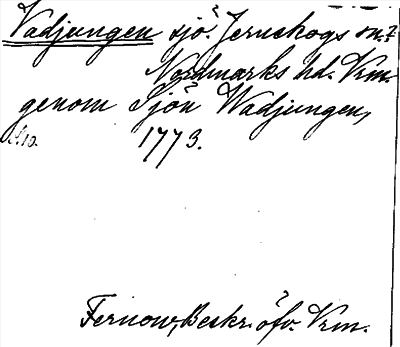 Vadjungen sjö. Jernskogs sn.?
Nordmarks hd. Vrm.
genom Sjön Wadjungen,
1773.
Fernow, Beskr. öfv. Vrm.